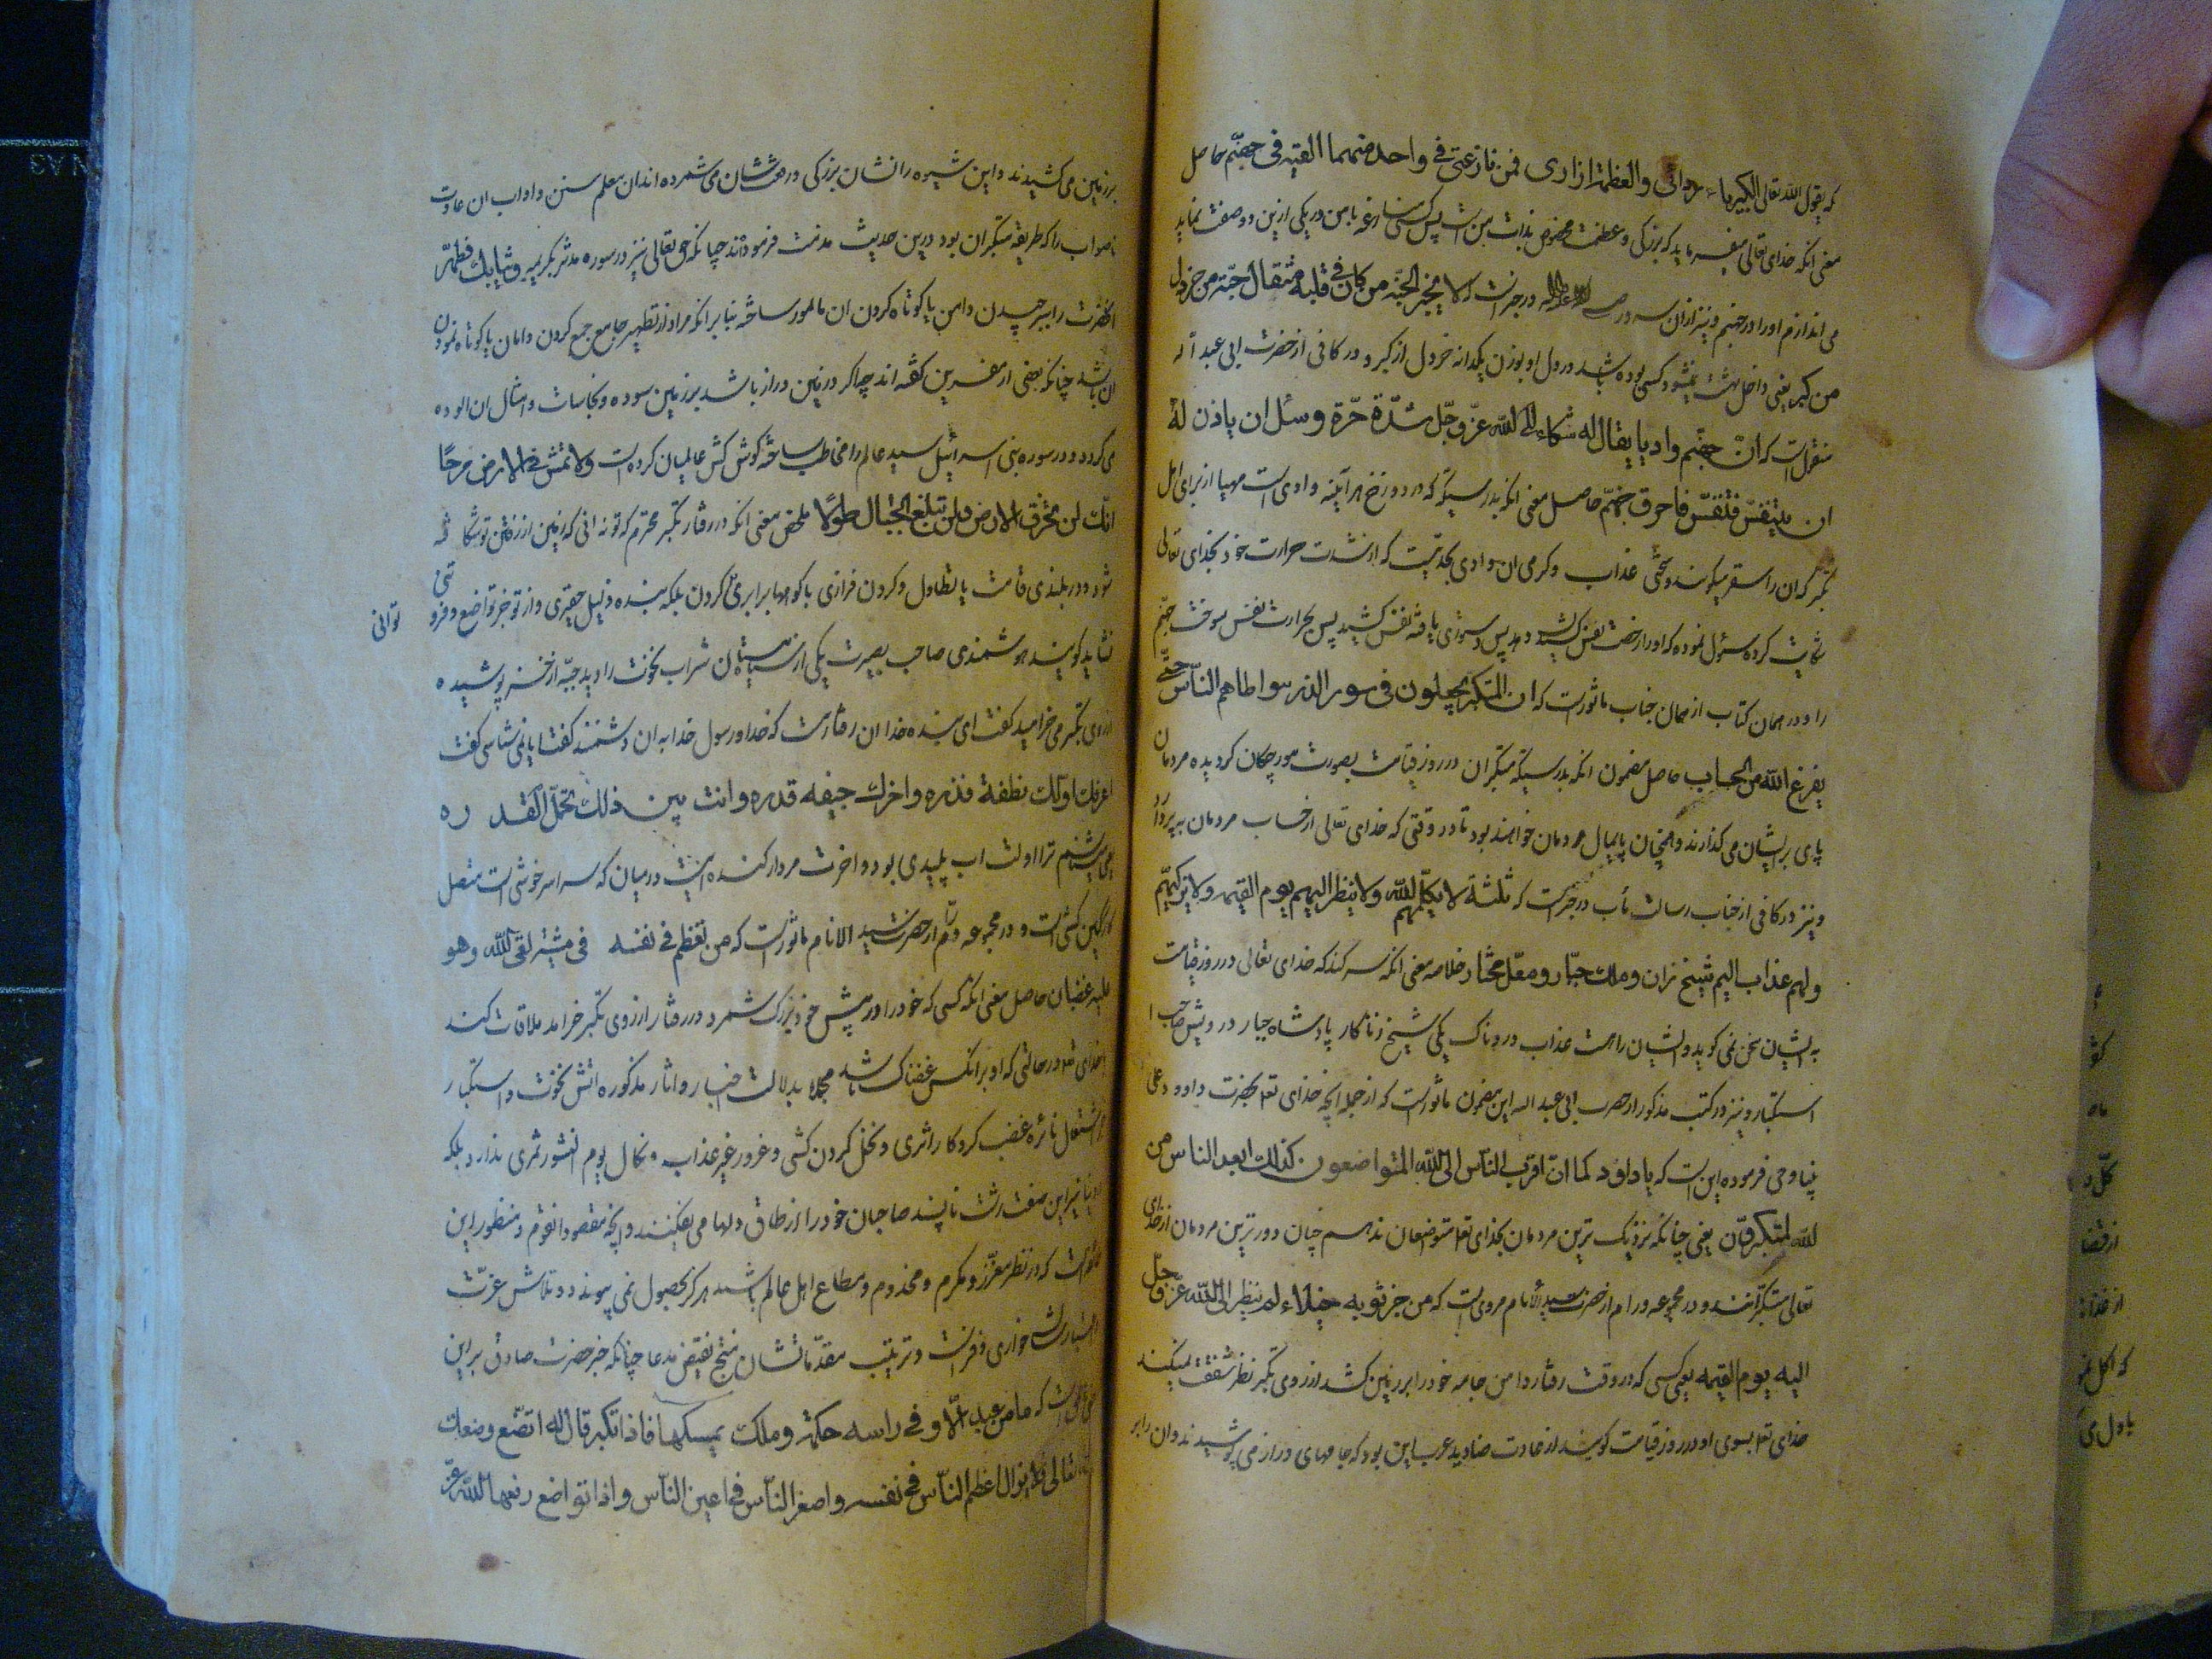 که یقول الله تعالی الکبریاء ردائی والعظمة ازاری فمن نازعنی فی واحد منهما القیته فی جهنّم حاصل
معنی انکه خدای تعالی میفرماید که بزرکی و عظمت مخصوص بذات من است پس کسی منازعه با من در یکی ازین دو صفت نماید
می اندازم او را در جهنم و نیز از ان سرور در خبر است که لا یدخل الجنّة من کان فی قلبه مثقال حبّة من خردل
من کبر یعنی داخل بهشت نمیشود کسی بوده باشد در دل او بوزن یکدانه خردل از کبر و در کافی از حضرت ابی عبد الله
منقولست که انّ جهنّم وادیا یقال له شکاء الی الله عزّ وجلّ شدّة حرّه وسئل ان یاذن له
ان یتنفّس فتنفّس فاحرق جهنّم حاصل معنی انکه بدرستیکه در دوزخ هر آینه وادی است مهیا از برای اهل
تکبر که ان را سقر میکویند و سختی عذاب و کرمی ان وادی بحدّیست که از شدت حرارت خود بخدای تعالی
شکایت کرده سئول نموده که او را رخصت نفس کشیدن دهد پس دستوری یافته نفس کشید پس بحرارت نفس سوخت جهنّم
را و در همان کتاب از همان جناب ماثورست که ان المتکبر یجعلون فی صور الذر یتواطاهم النّاس حتّی
یفرغ الله من الحساب حاصل مضمون انکه بدرستیکه متکبران در روز قیامت بصورت مورچکان کردیده مردمان
پای بر ایشان می کذارند و همچنان پایمال مردمان خواهند بود تا در وقتی که خدای تعالی از حساب مردمان بپردازد
و نیز در کافی از جناب رسالت مأب در خبرست که ثلثة لا یکلّمهم الله ولا ینظر الیهم یوم القیمه ولا یزکیهم
ولهم عذاب الیم شیخ زان وملک جبّار ومقلّ مختار خلاصه معنی انکه سه کس اند که خدای تعالی در روز قیامت
به ایشان سخن نمی کوید و ایشان راست عذاب دردناک یکی شیخ زناکار پادشاه جبار درویش صاحب ا
استکبار و نیز در کتب مذکور از حضرت ابی عبد الله این مضمون ماثورست که از جمله انچه خدای تعه بحضرت داوود علی
نبینا وحی فرموده این است که یا داؤد کما ان اقرب النّاس الی الله المتواضعون کذلک ابعد الناس من
الله المتکبرون یعنی چنانکه نزدیک ترین مردمان بخدای تعه متواضعان ند همچنان دورترین مردمان از خدای
تعالی متکبرانند و در مجموعه ورام از حضرت سید الأنام مروی است که من جر ثوبه خیلاء لم ینظر الله عزّ وجلّ
الیه یوم القیمه یعنی کسی که در وقت رفتار دامن جامه خود را بر زمین کشد از روی تکبر نظر شفقت نمیکند
خدای تعه بسوی او در روز قیامت کویند از عادت صنادید عرب این بود که جامهای دراز می پوشیدند و ان را بر
بر زمین می کشیدند و این شیوه را نشان بزرکی در حق شان می شمرده اند ان معلم سنن و اداب ان عادت
ناصواب را که طریقه متکبران بود درین حدیث مذمت فرموده‌اند چنانکه حق تعالی نیز در سوره مدثر بکریمه وثیابک فطهّر
انحضرت را ببرچیدن دامن یا کوتاه کردن ان مامور ساخته بنا بر انکه مراد از تطهیر جامع جمع کردن دامان یا کوتاه نمودن
ان باشد چنانکه بعضی از مفسرین کفته اند چه اکر در زمین دراز باشد بر زمین سوده و نجاسات و امثال ان الوده
می کردد و در سوره بنی اسرائیل سید عالم را مخاطب ساخته کوش کش عالمیان کرده است ولا تمش فی الارض مرحًا
انّک لن تخرق الارض ولن تبلغ الجبال طولًا ملخص معنی انکه در رفتار تکبر محترم که تو نه انی که زمین از رفتن تو شکافته
شود و در بلندی قامت یا تطاول و کردن فرازی با کوهها برابری کردن بلکه بنده ذلیل حقیری و از تو جز تواضع و فروتنی
توانی
نشاید کویند هوشمندی صاحب بصیرت یکی از سرمستان شراب نخوت را دید جبّه از خز پوشیده
از روی تکبر می خرامید کفت ای بنده خدا ان رفتارست که خدا و رسول خدا به ان دشمنند کفت ایا نمی شناسی کفت
اعرفک اولک نطفة قذره واخرک جیفه قذره وانت بین ذلک تحمل القذ ره
می شناسم ترا اولت اب پلیدی بود و اخرت مردار کنده ایست درمیان که سراسر خوشی است متصل
سرکین کشی است و در مجموعه ورّام از حضرت سید الانام ماثورست که من تعظم فی نفسه فی مشیته لقی الله وهو
علیه غضبان حاصل معنی انکه کسی که خود را در پیش خود بزرک شمرد و در رفتار از روی تکبر خرامد ملاقات کند
خدای تعه در حالتی که او بر انکس غضبناک باشد مجملا بدلالت اخبار و اثار مذکوره اتش نخوت و استکبار
را اشتعال نائره غضب کردکار اثری و نخل کردن کشی و غرور غیر عذاب و نکال یوم النشور ثمری ندارد بلکه
تاثیر این صفت زشت ناپسند صاحبان خود را از طاق دلها می افکنند و انچه مقصود انقوم و منظور این
است که در نظر معزّز و مکرم و مخدوم و مطاع اهل عالم باشند هرکز بحصول نمی پیوندد و تلاش عزّت
خواری و ترتیب مقدّماتشان منتج نقیض مدعا چنانکه خبر حضرت صادق بر این
که ما من عبد الّا وفی راسه حکمة وملک یمسکها فاذا تکبر قال له اتضع وضعک
تعالی فلا یزال اعظم النّاس فی نفسه واصغر النّاس فی اعین النّاس واذا تواضع رفعها الله عزّ